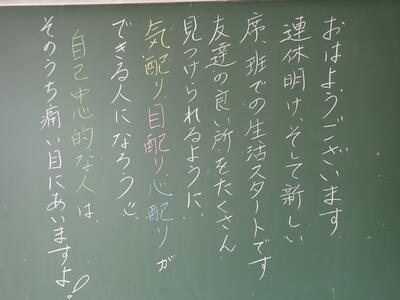 おはようございます
連休明け、そして新しい
席・班での生活スタートです
友達の良い所をたくさん
見つけられるように、
気配り、目配り、心配りが
できる人になろう
自己中心的な人は、
そのうち痛い目にあいますよ!